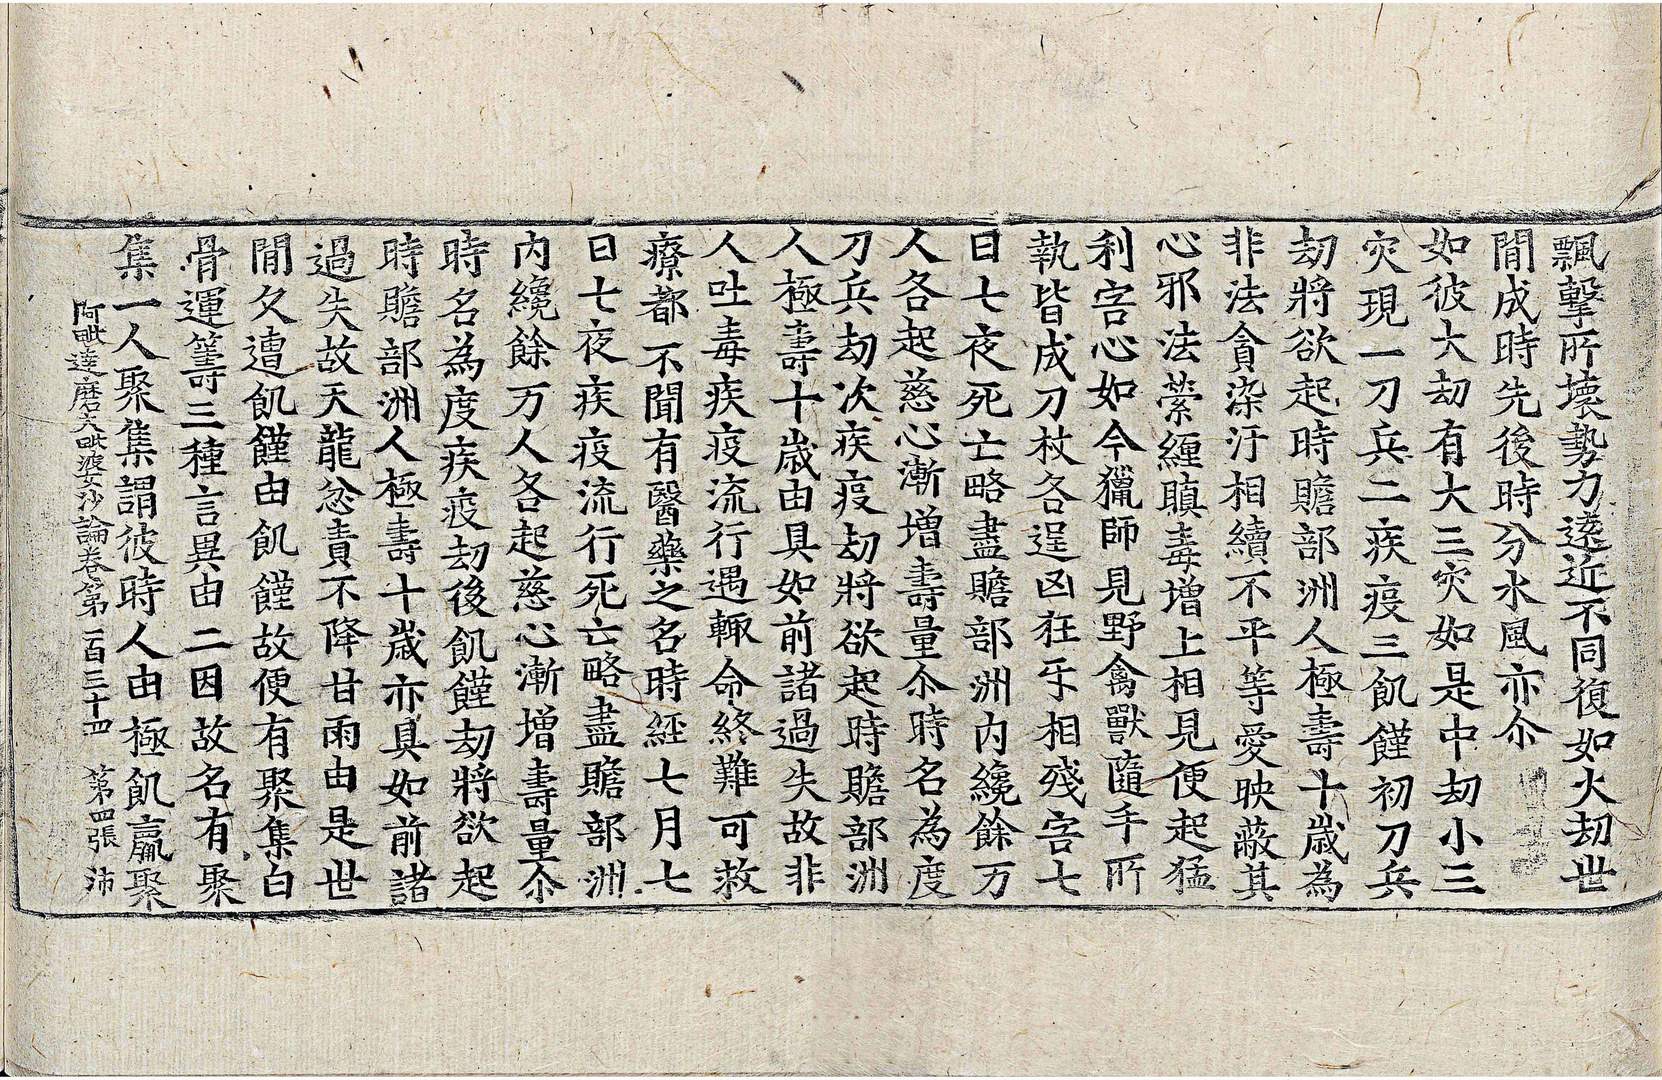 飄擊所壞勢力遠近不同復如火劫世
閒成時先後時分水風亦尒
如彼大劫有大三灾如是中劫小三
灾現一刀兵二疾疫三飢饉初刀兵
劫將欲起時贍部洲人極壽十歲為
非法貪染汙相續不平等愛映蔽其
心邪法縈纏瞋毒增上相見便起猛
利害心如今獵師見野禽獸隨手所
執皆成刀杖各逞凶狂乎相殘害七
日七夜死亡略盡贍部洲內纔餘万
人各起慈心漸增壽量尒時名為度
刀兵劫次疾疫劫將欲起時贍部洲
人極壽十歲由具如前諸過失故非
人吐毒疾疫流行遇輙命終難可救
療都不聞有醫藥之名時經七月七
日七夜疾疫流行死亡略盡贍部洲
內纔餘万人各起慈心漸增壽量尒
時名為度疾疫劫後飢饉劫將欲起
時贍部洲人極壽十歲亦具如前諸
過失故天龍忿責不降甘雨由是世
閒久遭飢饉由飢饉故便有聚集白
骨運籌三種言異由二因故名有聚
集一人聚集謂彼時人由極飢羸聚
阿毗達磨大毗婆沙論卷第一百三十四 第四張 沛